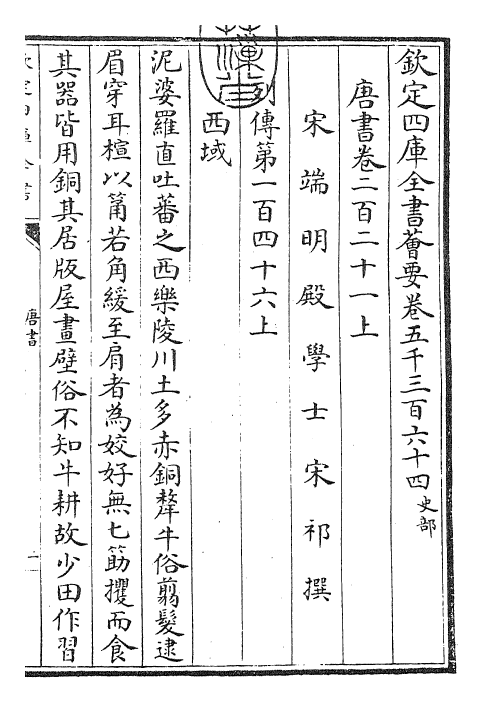 欽定四庫全書薈要卷五千三百六十四史部
唐書卷二百二十一上
宋端明殿學士宋祁撰
列傳第一百四十六上
西域
泥婆羅直吐蕃之西樂陵川土多赤銅犛牛俗翦髮逮
眉穿耳楦以筩若角緩至肩者為姣好無匕筯攫而食
其器皆用銅其居版屋畫壁俗不知牛耕故少田作習
唐書